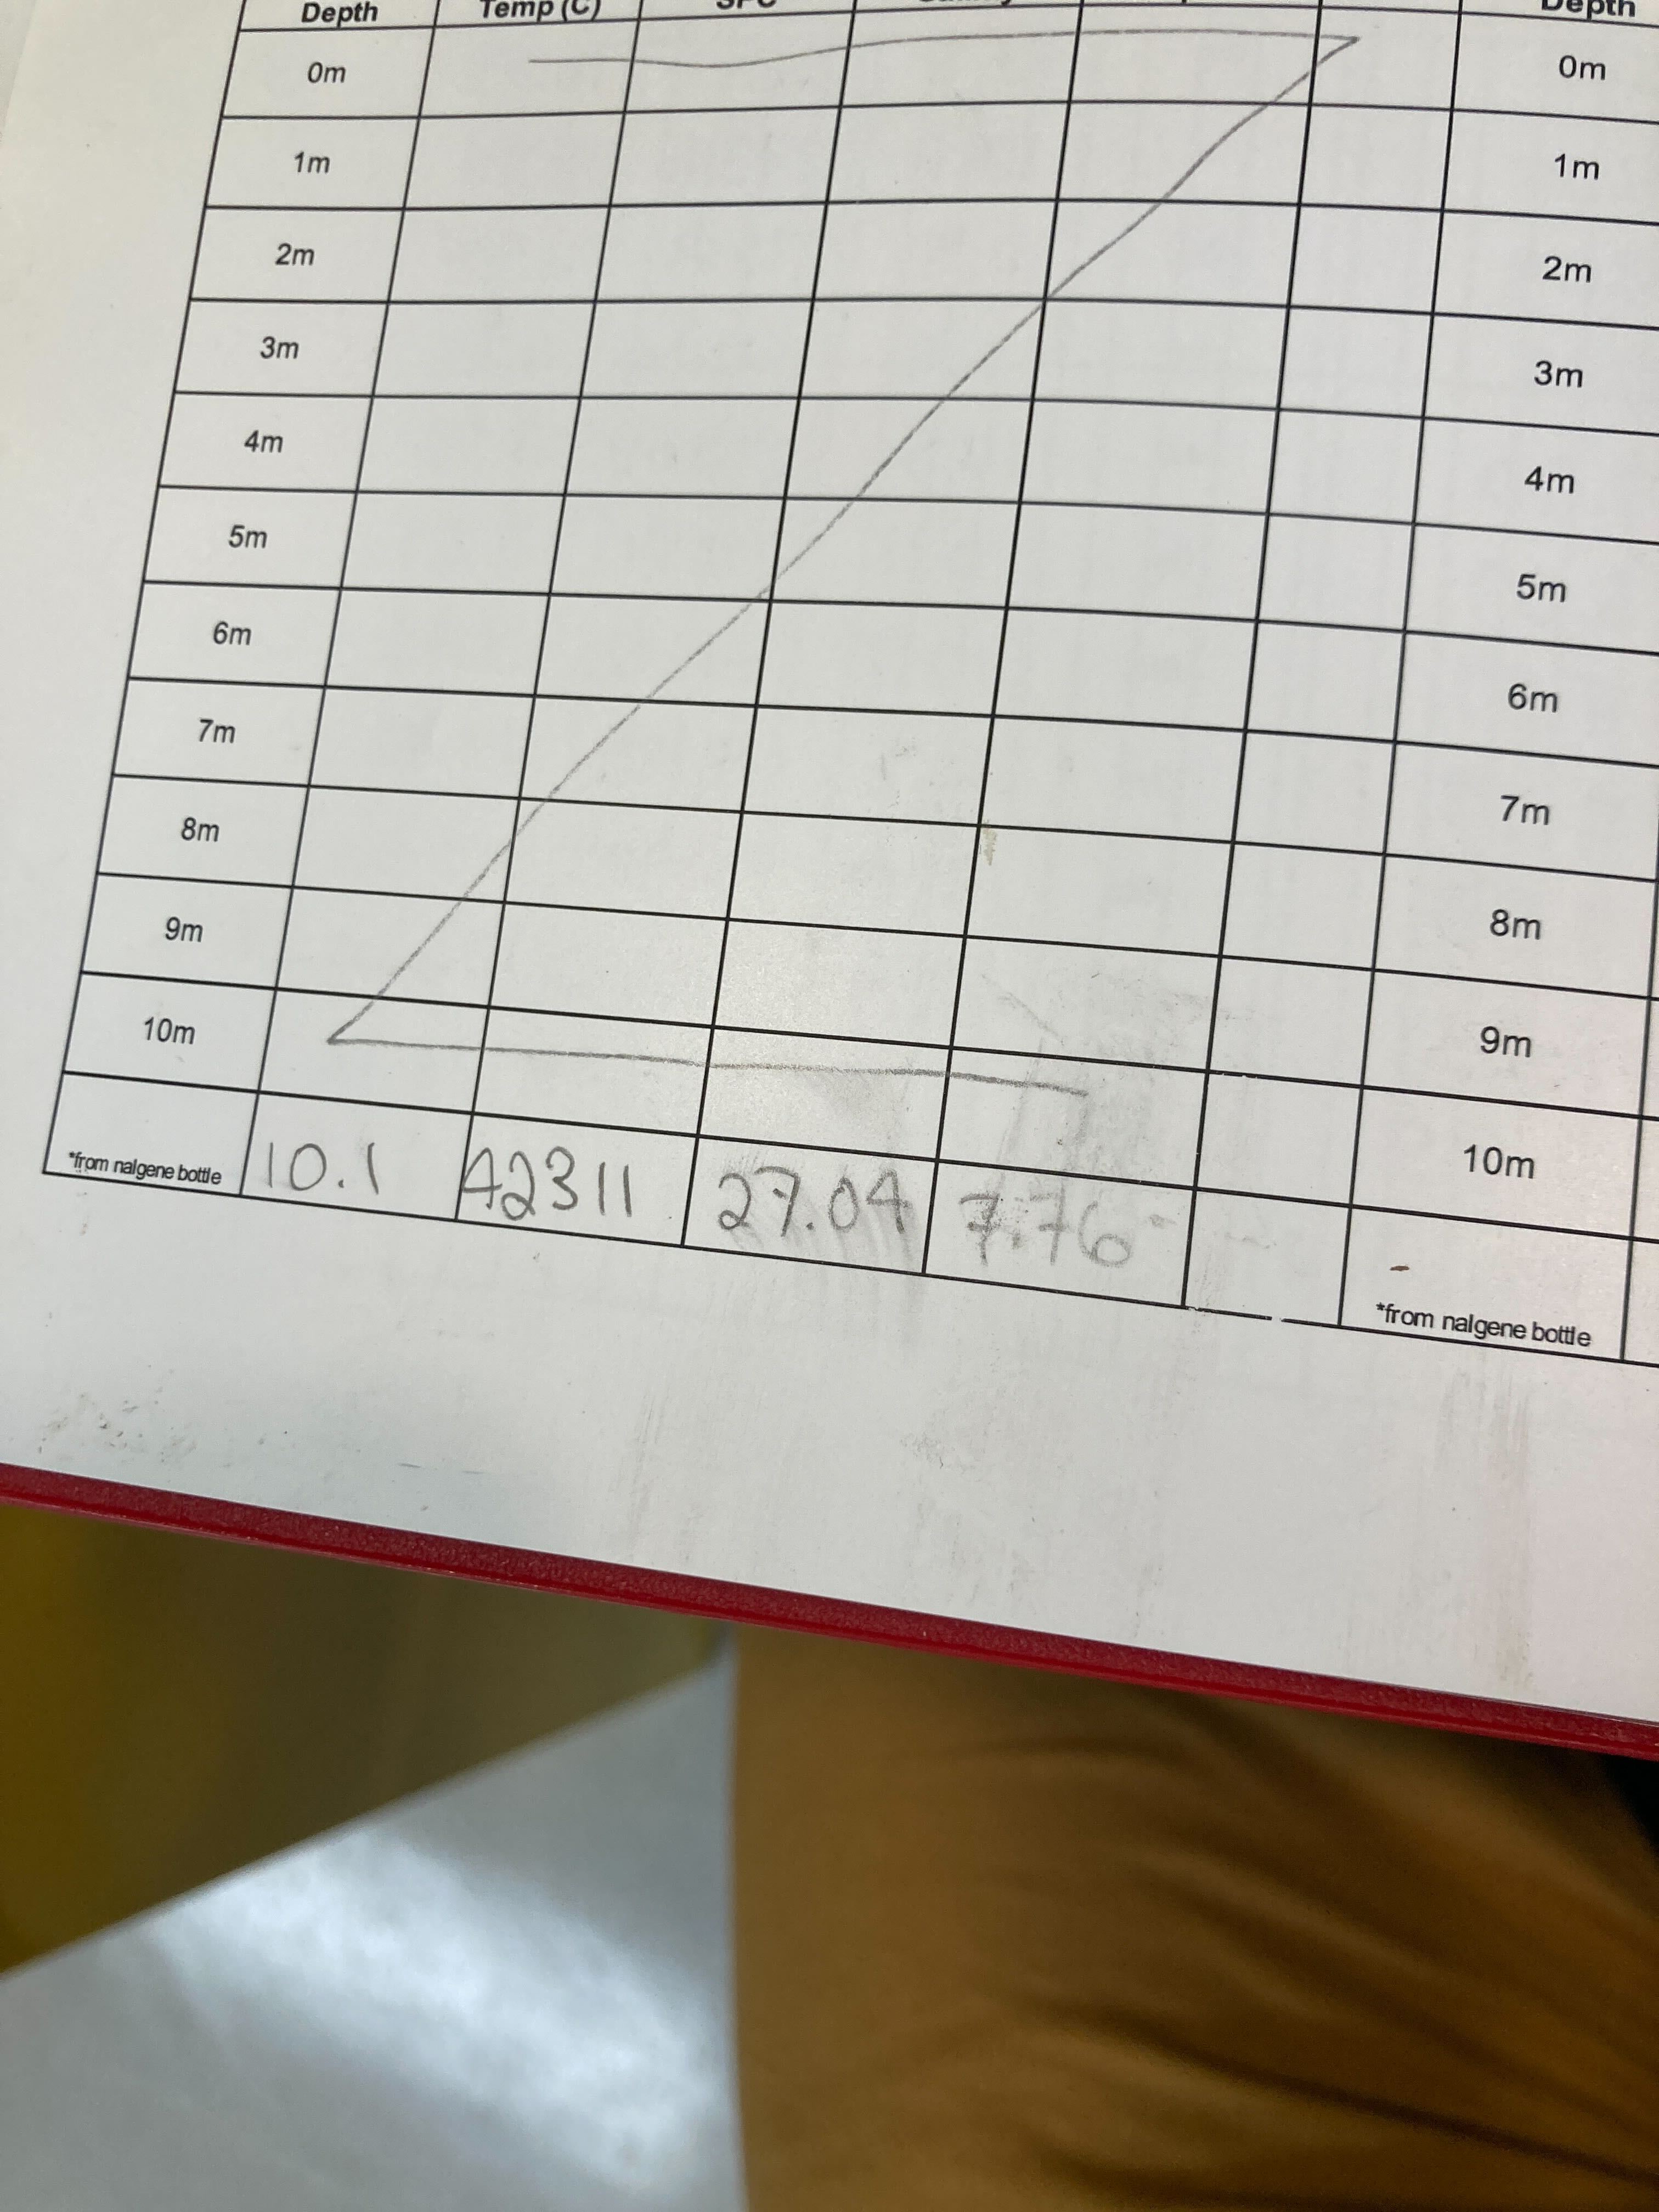 Depth Temp (C) SPC Depth
0m 0m
1m 1m
2m 2m
3m 3m
4m 4m
5m 5m
6m 6m
7m 7m
8m 8m
9m 9m
10m 10m
*from nalgene bottle 10.1 42311 27.04 7.76 *from nalgene bottle